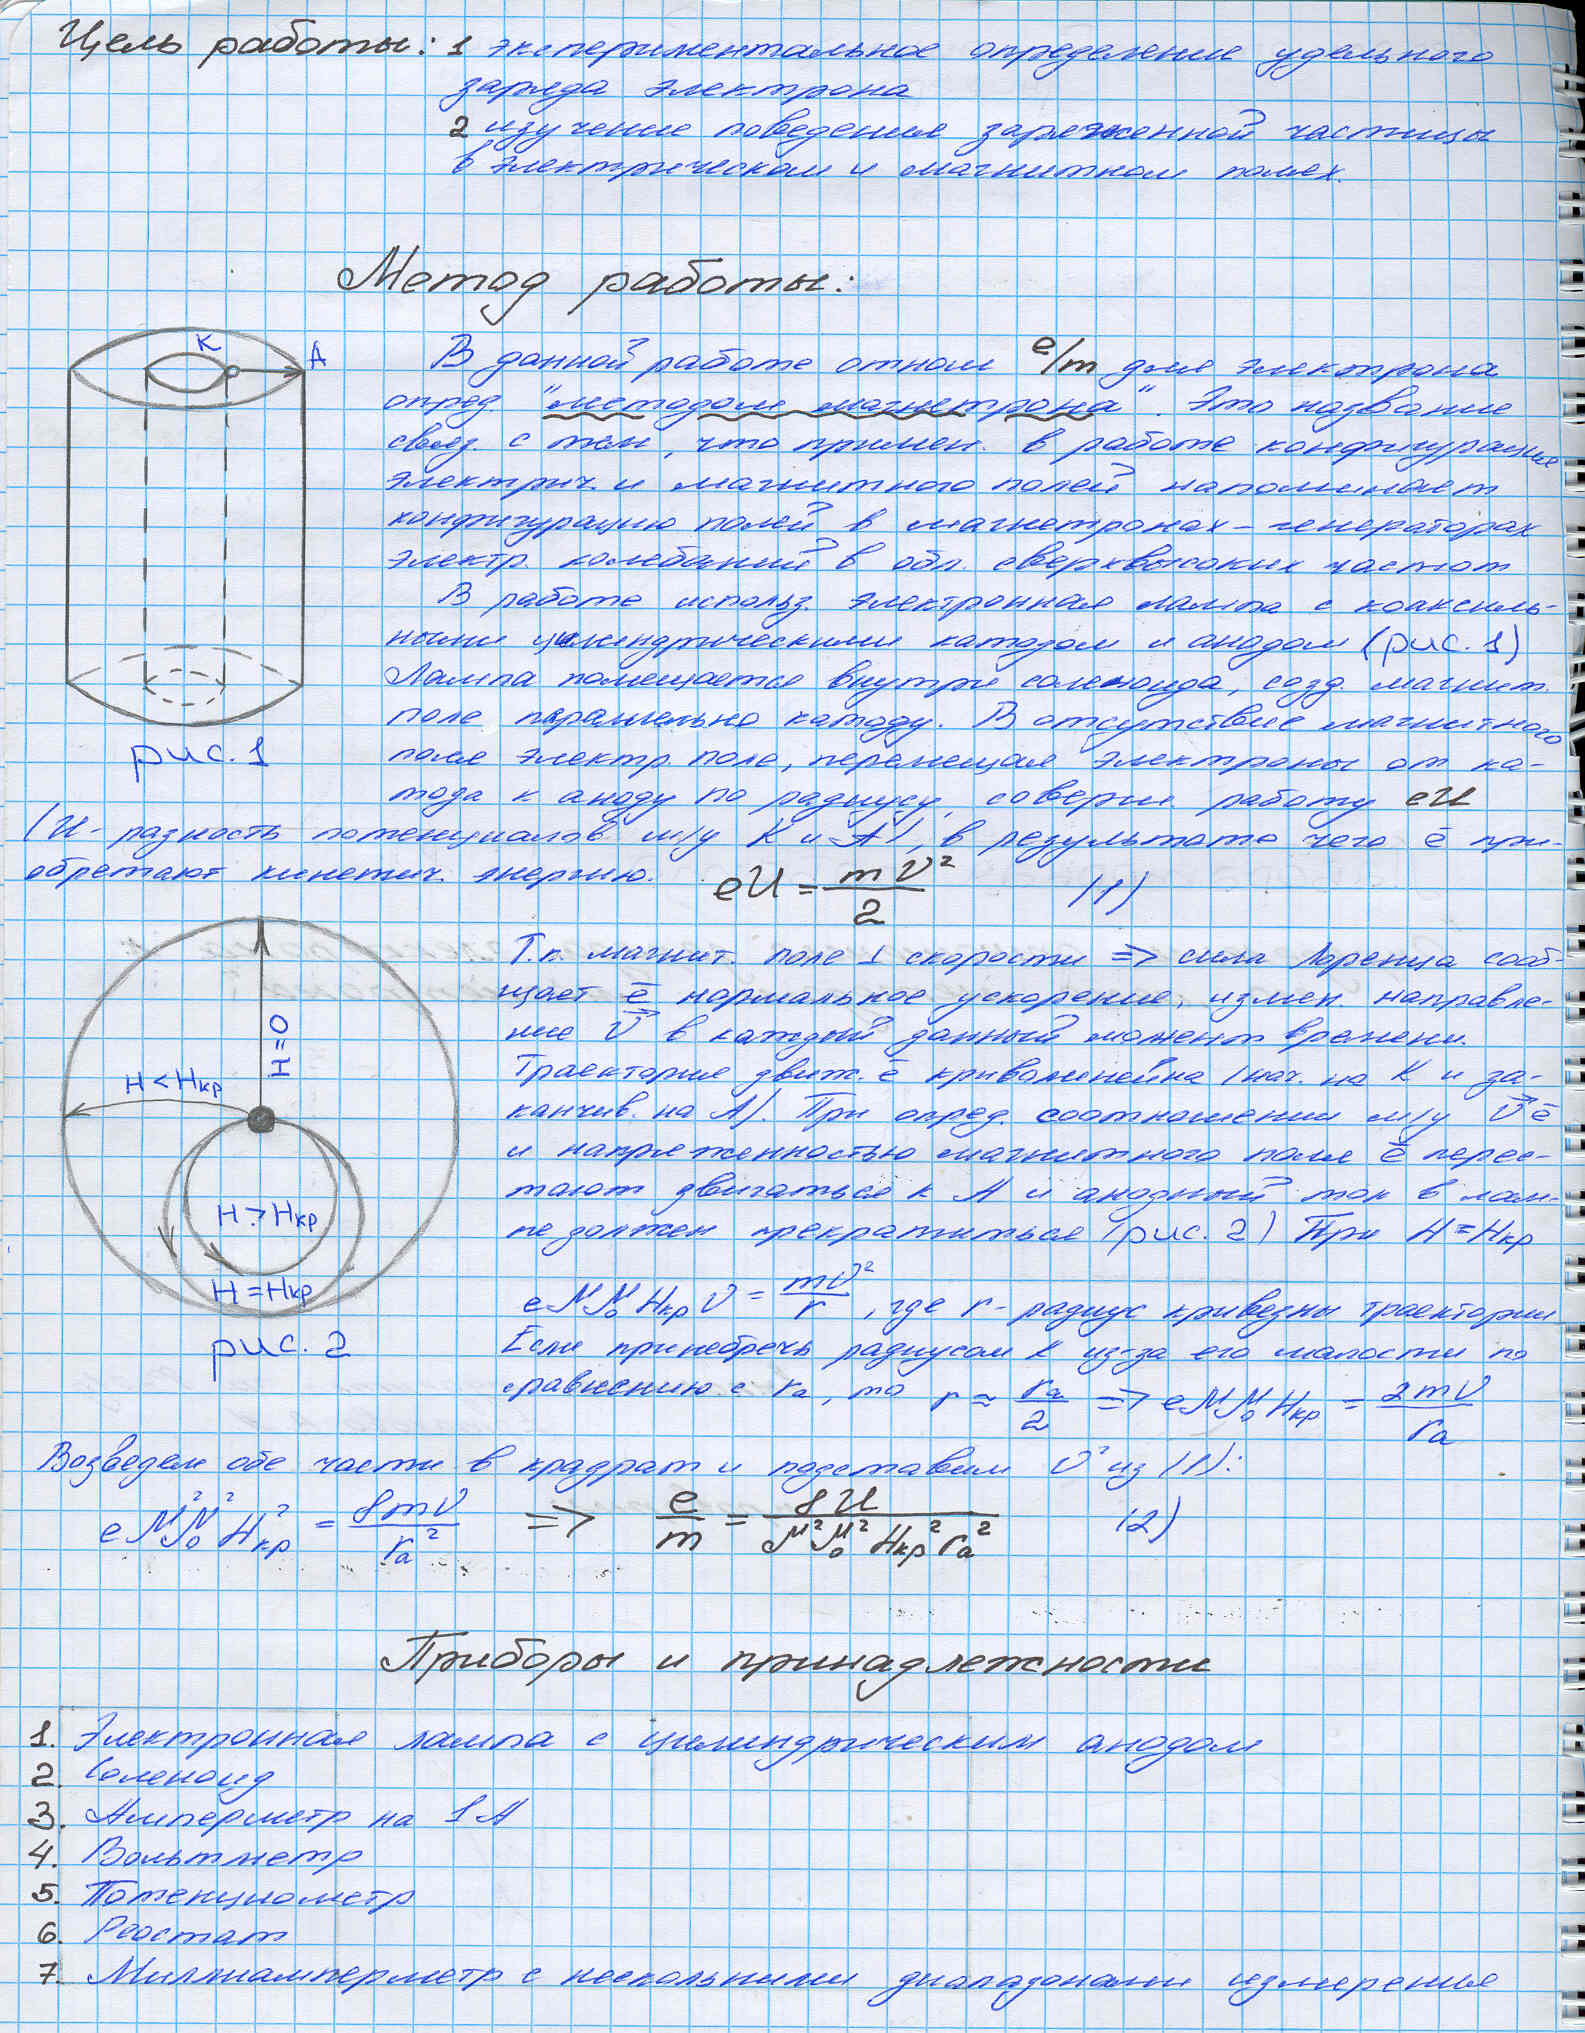 Цель работы: 1 экспериментальное определение удельного
заряда электрона
2 изучение поведения заряженной частицы
в электрическом и магнитном полях.
Метод работы:
К
А
рис. 1
В данной работе отнош e/m для электрона
опред. "методом магнетрона". Это название
связ. с тем, что примен. в работе конфигурация
электрич. и магнитного полей напоминает
конфигурацию полей в магнетронах – генераторах
электр. колебаний в обл. сверхвысоких частот
В работе использ. электронная лампа с коаксиль-
ными цилиндрическими катодом и анодом (рис. 1)
Лампа помещается внутри соленоида, созд. магнит.
поле параллельно катоду. В отсутствие магнитного
поля электр. поле, перемещая электроны от ка-
тода к аноду по радиусу, соверш. работу eU
(U - разность потенциалов м/у К и А), в результате чего ē при-
обретают кинетич. энергию. eU = mV²/2 (1)
H=0
H < Hкр
H > Hкр
H = Hкр
рис. 2
Т.к. магнит. поле ⊥ скорости => сила Лоренца сооб-
щает ē нормальное ускорение, измен. направле-
ние V⃗ в каждый данный момент времени.
Траектория движ. ē криволинейна (нач. на К и за-
канчив. на А). При опред. соотношении м/у V⃗ ē
и напряженностью магнитного поля ē перес-
тают двигаться к А и анодный ток в лам-
пе должен прекратиться (рис. 2) При H = Hкр
eμμ₀HкрV = mV²/r, где r - радиус кривезны траектории
Если принебречь радиусом К из-за его малости по
сравнению с rₐ, то r ≈ rₐ/2 => eμμ₀Hкр = 2mV/rₐ
Возведем обе части в крадрат и подставим V² из (1):
eμ²μ₀²Hкр² = 8mU/rₐ² => e/m = 8U/μ²μ₀²Hкр²rₐ² (2)
Приборы и принадлежности
1. Электронная лампа с цилиндрическим анодом
2. Соленоид
3. Амперметр на 1А
4. Вольтметр
5. Потенциометр
6. Реостат
7. Миллиамперметр с несколькими диапазонами измерения